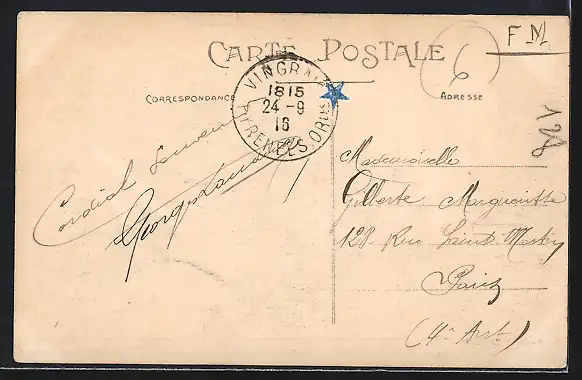 F M
CARTE POSTALE
6
CORRESPONDANCE
ADRESSE
VINGRAU
1815
24 - 9
16
PYRENEES ORles
128
Cordial Souvenir
Georges
Mademoiselle
Gilberte Margueritte
128 Rue Saint Martin
Paris
(4e Arrt)